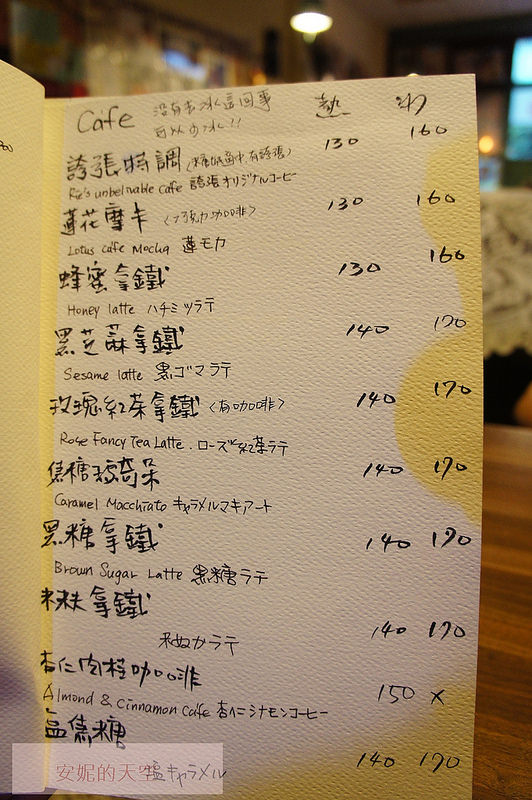 Cafe 沒有去冰這回事 熱 冰
可以少冰!!
誇張特調 130 160
Ric's unbelivable cafe 誇張オリジナルコーヒー
蓮花摩卡 〈巧克力咖啡〉 130 160
Lotus cafe Mocha 蓮モカ
蜂蜜拿鐵 130 160
Honey latte ハチミツラテ
黑芝麻拿鐵 140 170
Sesame latte 黒ゴマラテ
玫瑰紅茶拿鐵 〈有咖啡〉 140 170
Rose Fancy Tea Latte . ローズ紅茶ラテ
焦糖瑪奇朵 140 170
Caramel Macchiato キャラメルマキアート
黑糖拿鐵 140 170
Brown Sugar Latte 黒糖ラテ
米麩拿鐵 140 170
米ぬかラテ
杏仁肉桂咖啡 150 x
Almond & Cinnamon Cafe 杏仁シナモンコーヒー
塩焦糖 140 170
塩キャラメル
安妮的天空